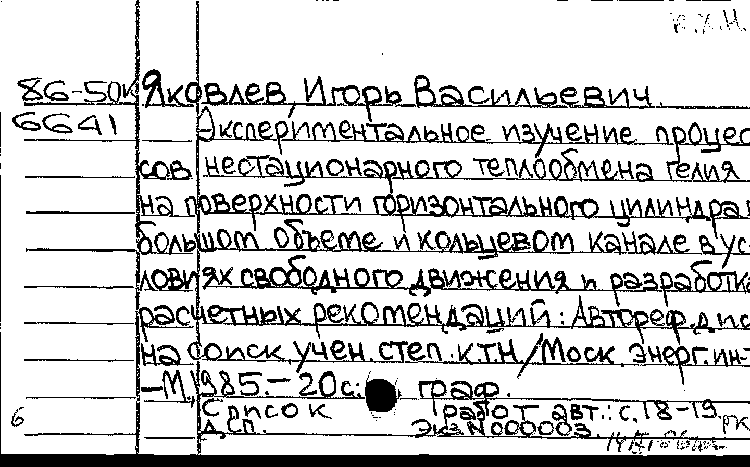 К.Х.Н.
86-50к Яковлев, Игорь Васильевич.
6641 Экспериментальное изучение процес
сов нестационарного теплообмена гелия
на поверхности горизонтального цилиндра в
большом объеме и кольцевом канале в ус-
ловиях свободного движения и разработка
расчетных рекомендаций: Автореф. дис
на соиск. учен. степ. к.т.н/Моск. энерг. ин-т
-М., 1985.-20с: граф.
Список работ авт.: с.18-19
6 Д.СП. Экз.N000003. РК